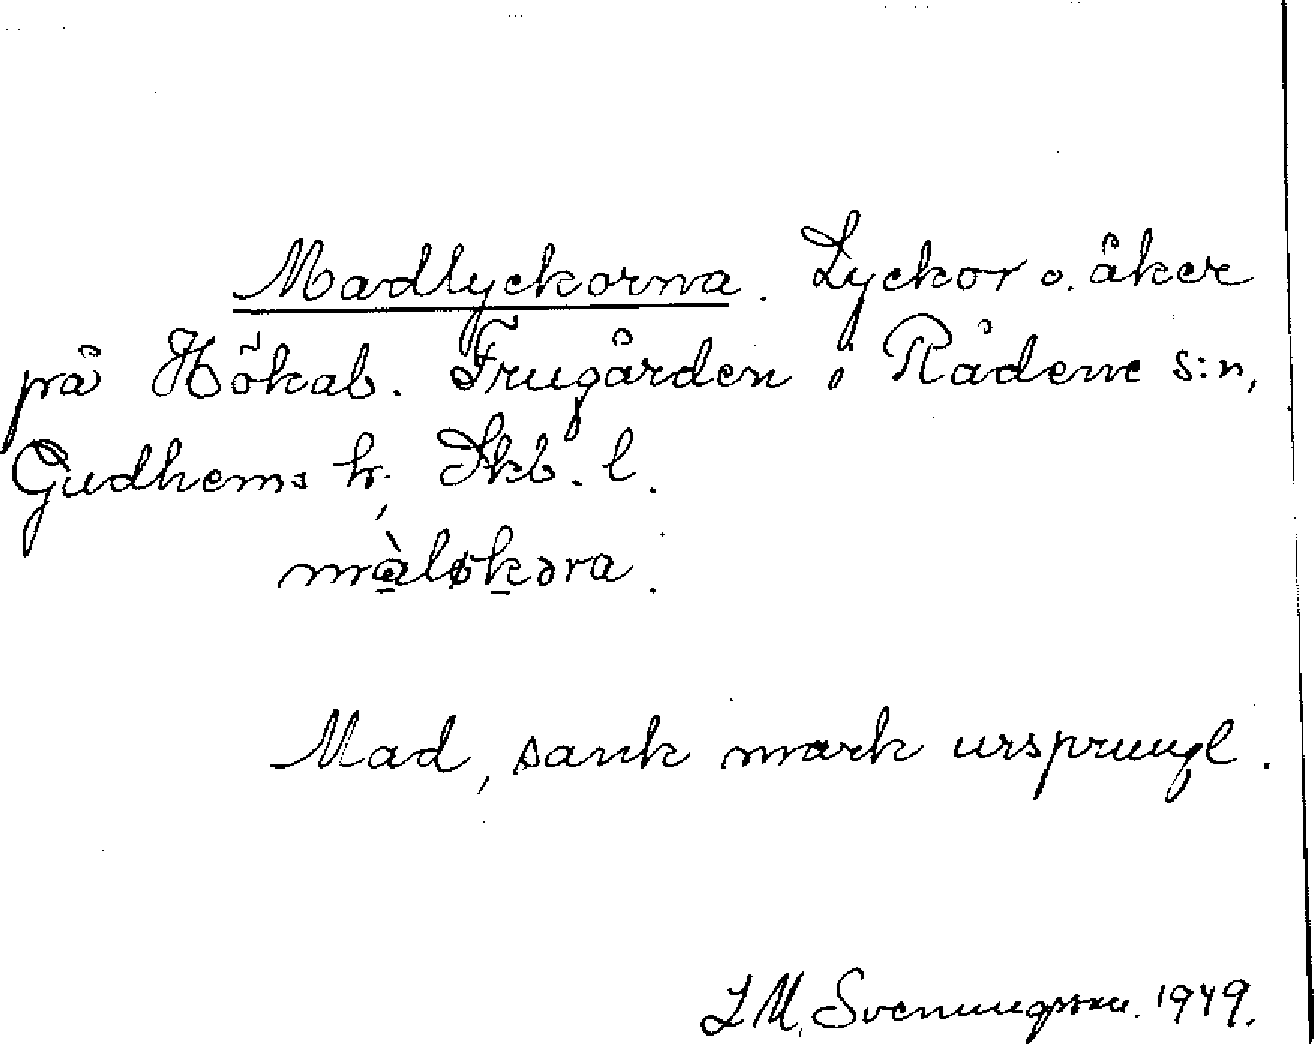 Madlyckorna. Lyckor o. åker
på Hökab. Frugården i Rådene s:n,
Gudhems h., Skb. l.
màløkəra.
Mad, sank mark ursprungl.
L M. Svenungsson. 1949.